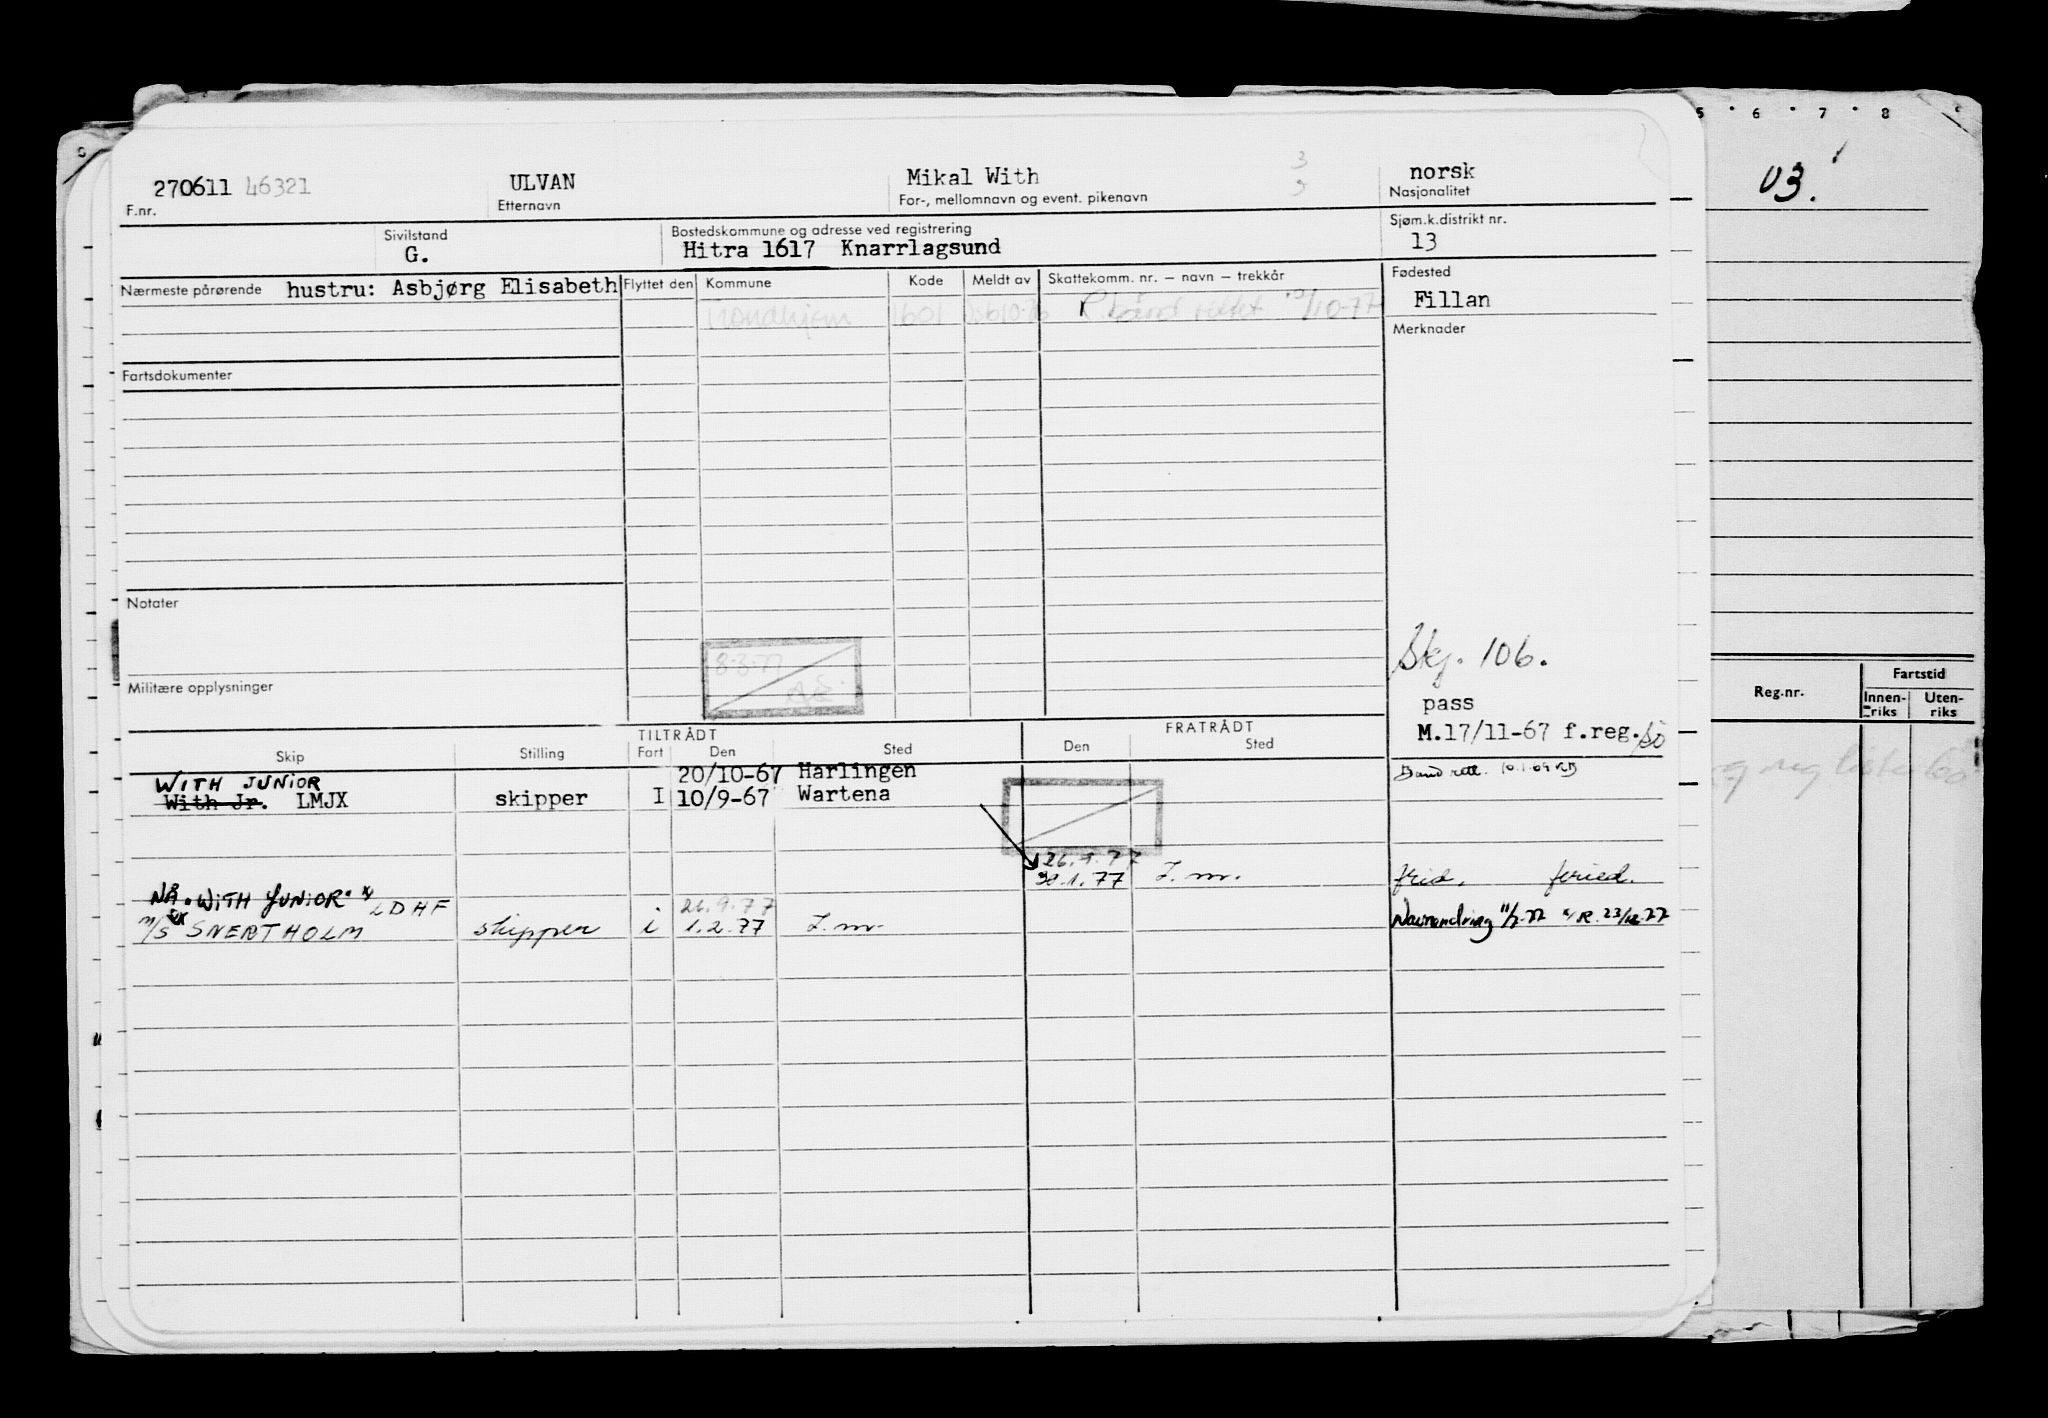 5 · 6 · 7 · 8
03.
270611 46321 ULVAN Mikal With norsk
F.nr. Etternavn For-, mellomnavn og event. pikenavn Nasjonalitet
Sivilstand Bostedskommune og adresse ved registrering Sjøm.k.distrikt nr.
G. Hitra 1617 Knarrlagsund 13
Nærmeste pårørende hustru: Asbjørg Elisabeth Flyttet den Kommune Kode Meldt av Skattekomm. nr. – navn – trekkår Fødested
Fillan
Trondhjem 1601 10-77
Merknader
Fartsdokumenter
Notater
8-3-77
Militære opplysninger
Skj. 106.
pass
M.17/11-67 f.reg.
Reg.nr. Fartstid
Innen-riks Uten-riks
TILTRÅDT FRATRÅDT
Skip Stilling Fart Den Sted Den Sted
WITH JUNIOR 20/10-67 Harlingen
With Jr. LMJX skipper I 10/9-67 Wartena
26.9.77
30.1.77 I.m. fried.
NÅ "WITH JUNIOR" x/ LDHF 26.9.77
M/S EX SNERTHOLM skipper i 1.2.77 I.m. Navnendring 11/7-77 x/R. 23/12-77